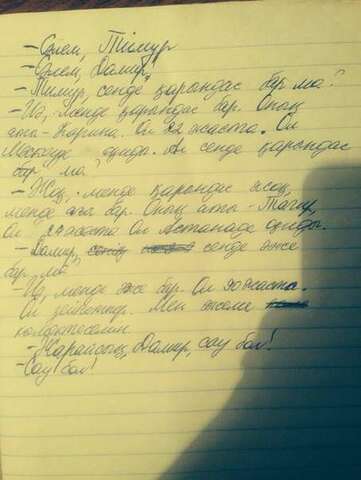 -Сәлем, Тімур
-Сәлем, Дамир,
-Тимур, сенде қарындас бар ма?
-Иә, менде қарындас бар. Оның
аты-Карина. Ол 22 жаста. Ол
Мәскеуде тұрады. Ал сенде қарындас
бар ма?
-Жоқ, менде қарындас жоқ,
менде аға бар. Оның аты-Тагир,
Ол жаста Ол Астанада тұрады.
-Дамир, сенде әже
бар ма
-Иә, менде әже бар. Ол жаста.
Ол зейнеткер. Мен әжемі
-Жарайсың, Дамир, сау бол!
-Сау бол!